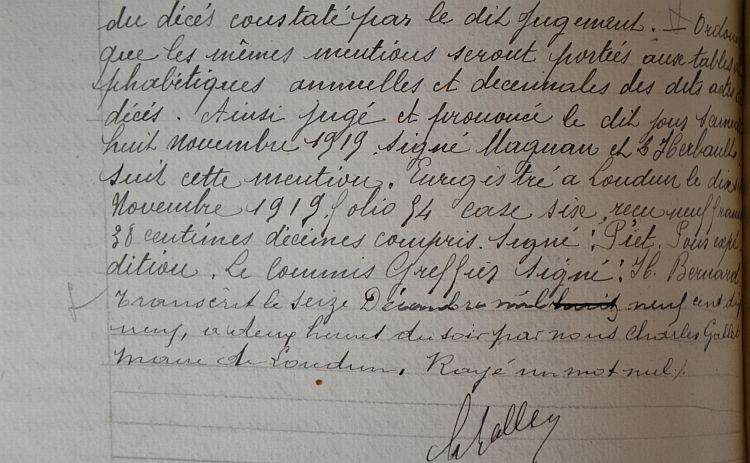 du décés constaté par le dit jugement. Ordon
que les mêmes mentions seront portées aux tables
phabétiques annuelles et decennales des dits actes
décés. Ainsi jugé et prononcé le dit jour samedi
huit novembre 1919 signé Magnan et Herbault
suit cette mention. Enregistré a Loudun le
Novembre 1919. folio 34 case six, reçu neuf francs
38 centimes décimes compris. Signé: Piet. Pour expé
dition. Le Commis Greffier Signé: H. Bernard
Transcrit le seize Décembre mil huit neuf cent dix
neuf, a deux heures du soir par nous Charles Gallet
maire de Loudun. Rayé un mot nul.